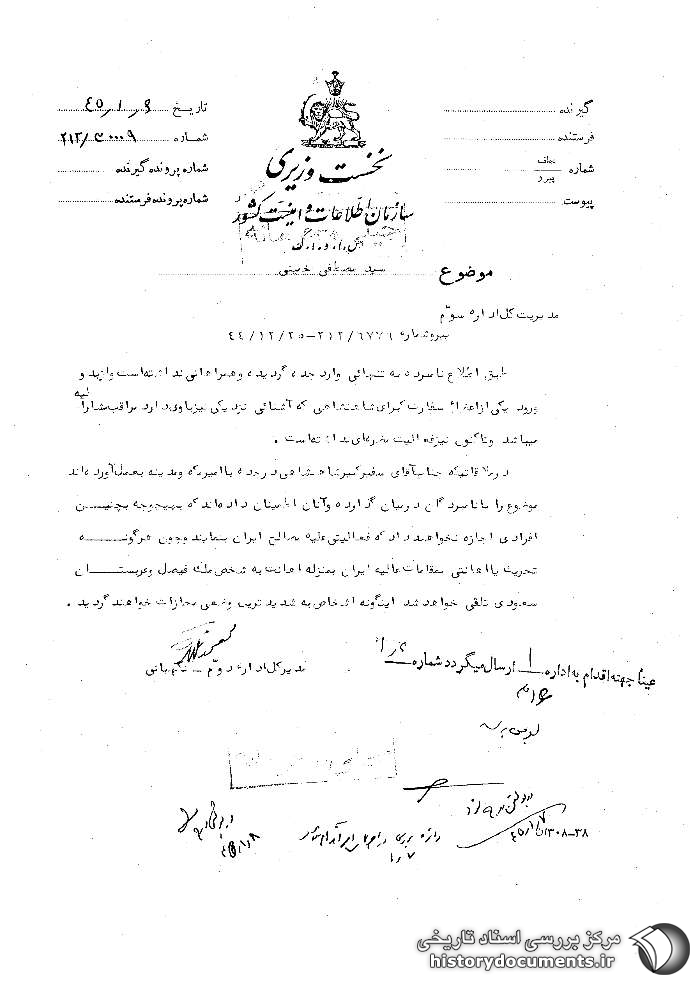 گیرنده
فرستنده
شماره
پیوست
تاریخ ۴۵/۱/۶
شماره ۲۱۲/۳۰۰۰۹
شماره پرونده گیرنده
شماره پرونده فرستنده
نخست وزیری
سازمان اطلاعات و امنیت کشور
س.ا.و.ا.ک
موضوع سید مصطفی خمینی
مدیریت کل اداره سوم
پیرو شماره ۲۱۲/۶۷۷۹-۴۴/۱۲/۲۵
طبق اطلاع نامبرده به تنهائی وارد جده گردیده و همراهانی نداشته است و از بدو
ورود یکی از اعضا سفارت کبرای شاهنشاهی که آشنائی نزدیکی نیز باوی دارد مراقب مشارالیه
میباشد و تاکنون نیز فعالیت مضره‌ای نداشته است .
در ملاقاتیکه جناب آقای سفیر کبیر شاهنشاهی در جده با امیر مکه و مدینه بعمل آورده‌اند
موضوع را با نامبردگان در میان گذارده و آنان اطمینان داده‌اند که بهیچوجه بچنین
افرادی اجازه نخواهند داد که فعالیتی علیه مصالح ایران بنمایند و چون هرگونه
تحریک یا اهانتی بمقامات عالیه ایران بمنزله اهانت به شخص ملک فیصل و عربستان
سعودی تلقی خواهد شد اینگونه اشخاص به شدیدترین وضعی مجازات خواهند گردید .
مدیر کل اداره دوم -
عیناً جهت اقدام به اداره ارسال میگردد شماره
۴۵/۱/۷
۱۳۰۸-۳۸
۱/۷
۴۵/۱/۸
مرکز بررسی اسناد تاریخی
historydocuments.ir